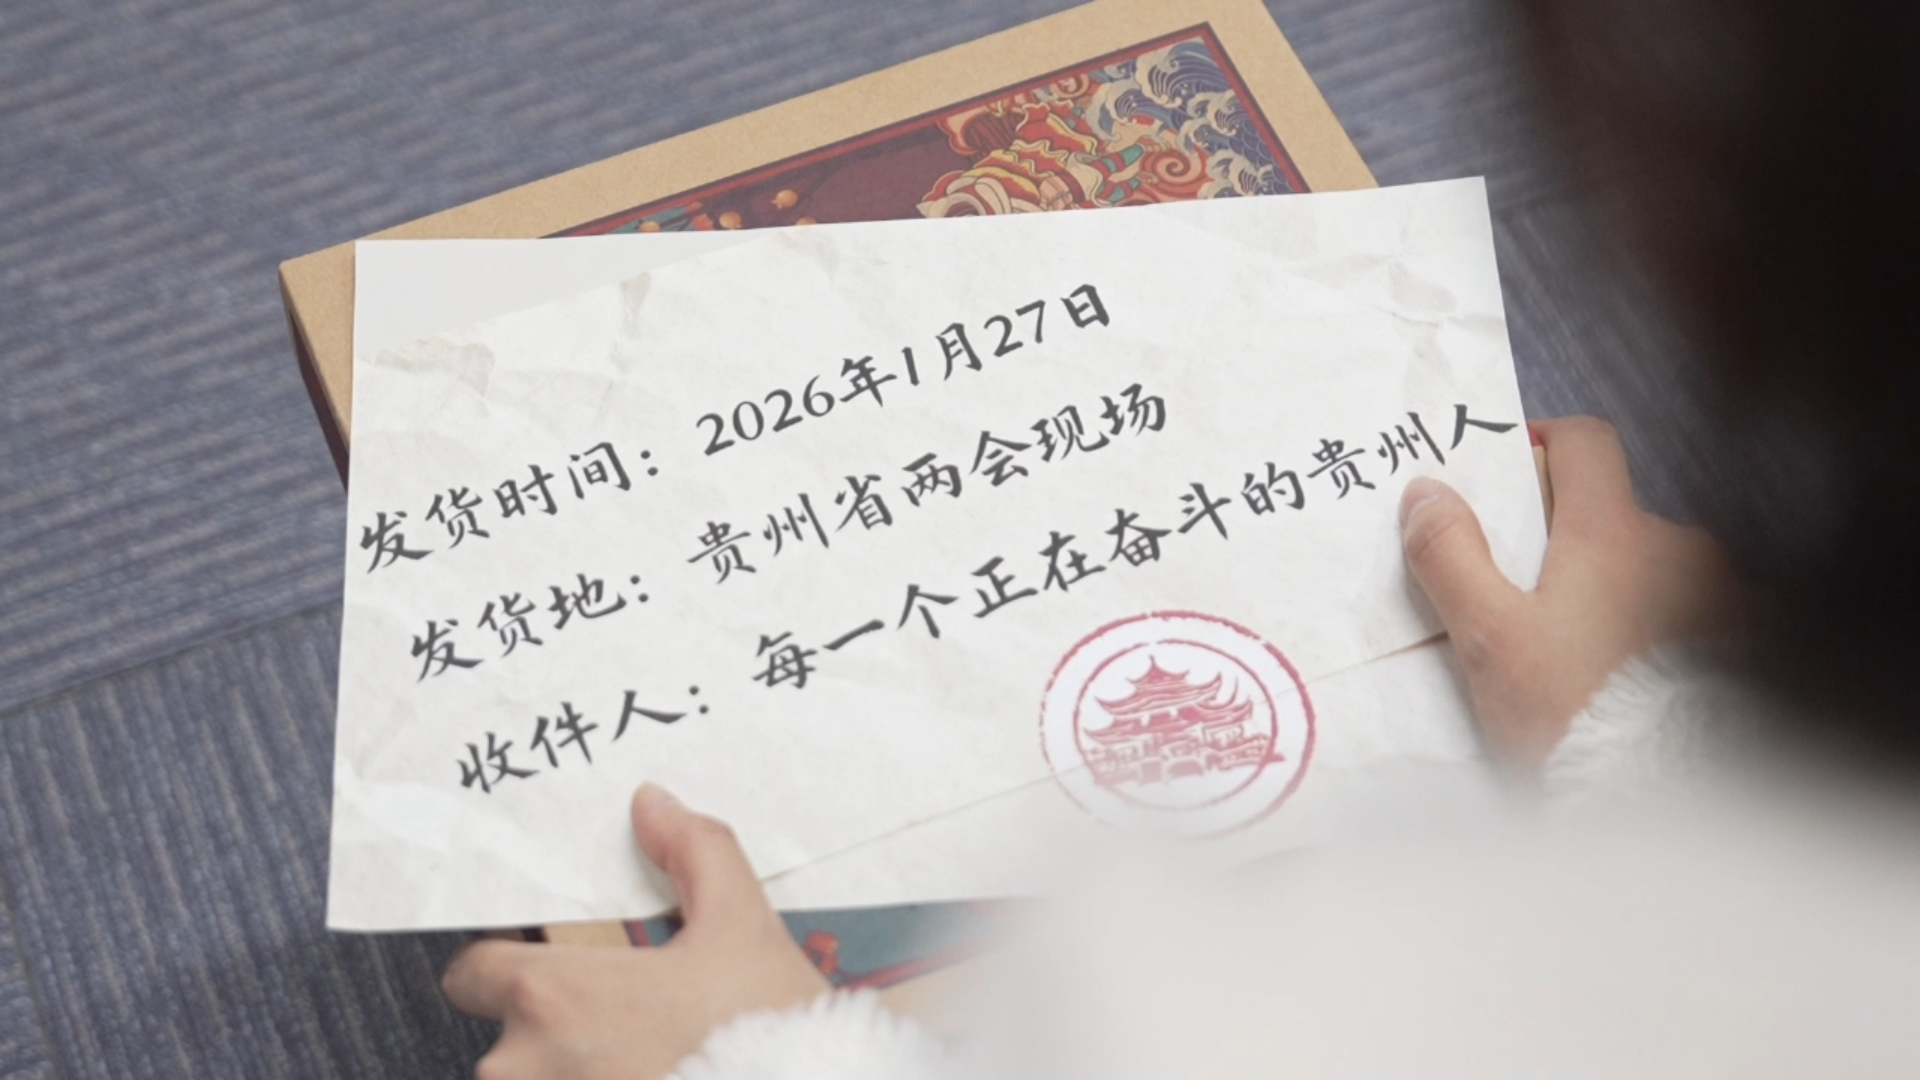 发货时间：2026年1月27日
发货地：贵州省两会现场
收件人：每一个正在奋斗的贵州人